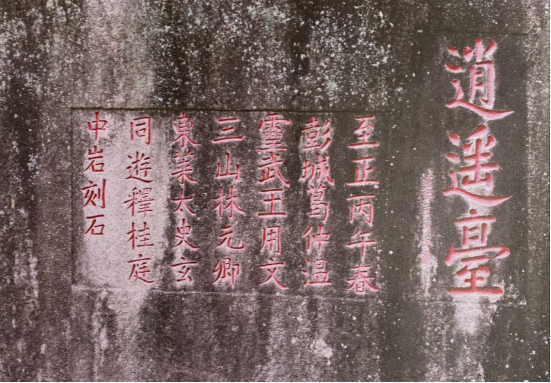 逍遥臺
至正丙午春
彭城葛仲温
靈武王用文
三山林元卿
東萊太史玄
同遊釋桂庭
中岩刻石